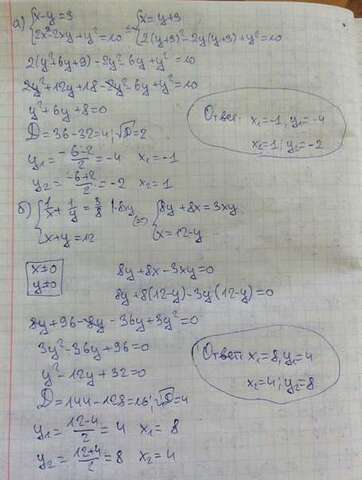 а) { x-y=3 = { x=y+3
2x²-2xy+y²=10 2(y+3)²-2y(y+3)+y²=10
2(y²+6y+9)-2y²-6y+y²=10
2y²+12y+18-2y²-6y+y²=10
y²+6y+8=0
D=36-32=4; √D=2
y1=(-6-2)/2=-4 x1=-1
y2=(-6+2)/2=-2 x2=1
Ответ: x1=-1, y1=-4
x2=1; y2=-2
б) { 1/x+1/y=3/8 |·8xy <=> { 8y+8x=3xy
x+y=12 x=12-y
x≠0
y≠0
8y+8x-3xy=0
8y+8(12-y)-3y(12-y)=0
8y+96-8y-36y+3y²=0
3y²-36y+96=0
y²-12y+32=0
D=144-128=16; √D=4
y1=(12-4)/2=4 x1=8
y2=(12+4)/2=8 x2=4
Ответ: x1=8, y1=4
x2=4; y2=8